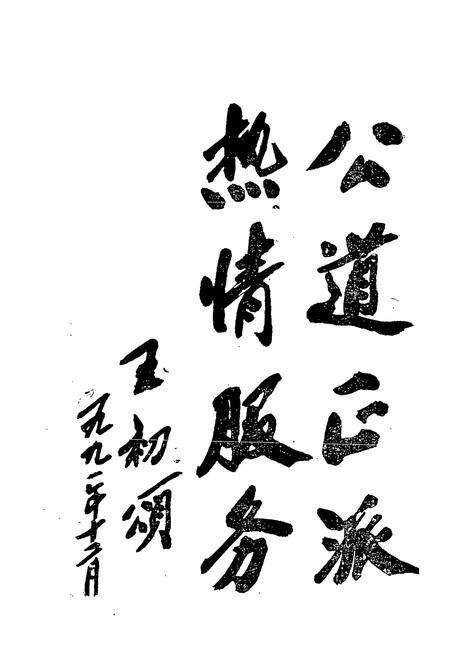 公道正派
热情服务
王初
一九九一年十二月